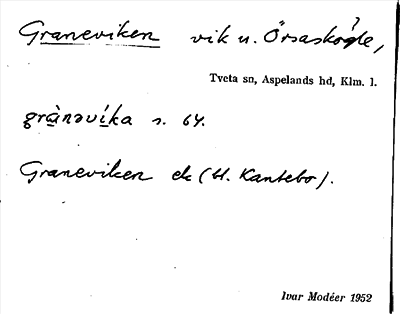 Graneviken vik u. Örsaskögle,
Tveta sn, Aspelands hd, Klm. l.
grànəvíka s. 64.
Graneviken ek (H. Kantebo).
Ivar Modéer 1952